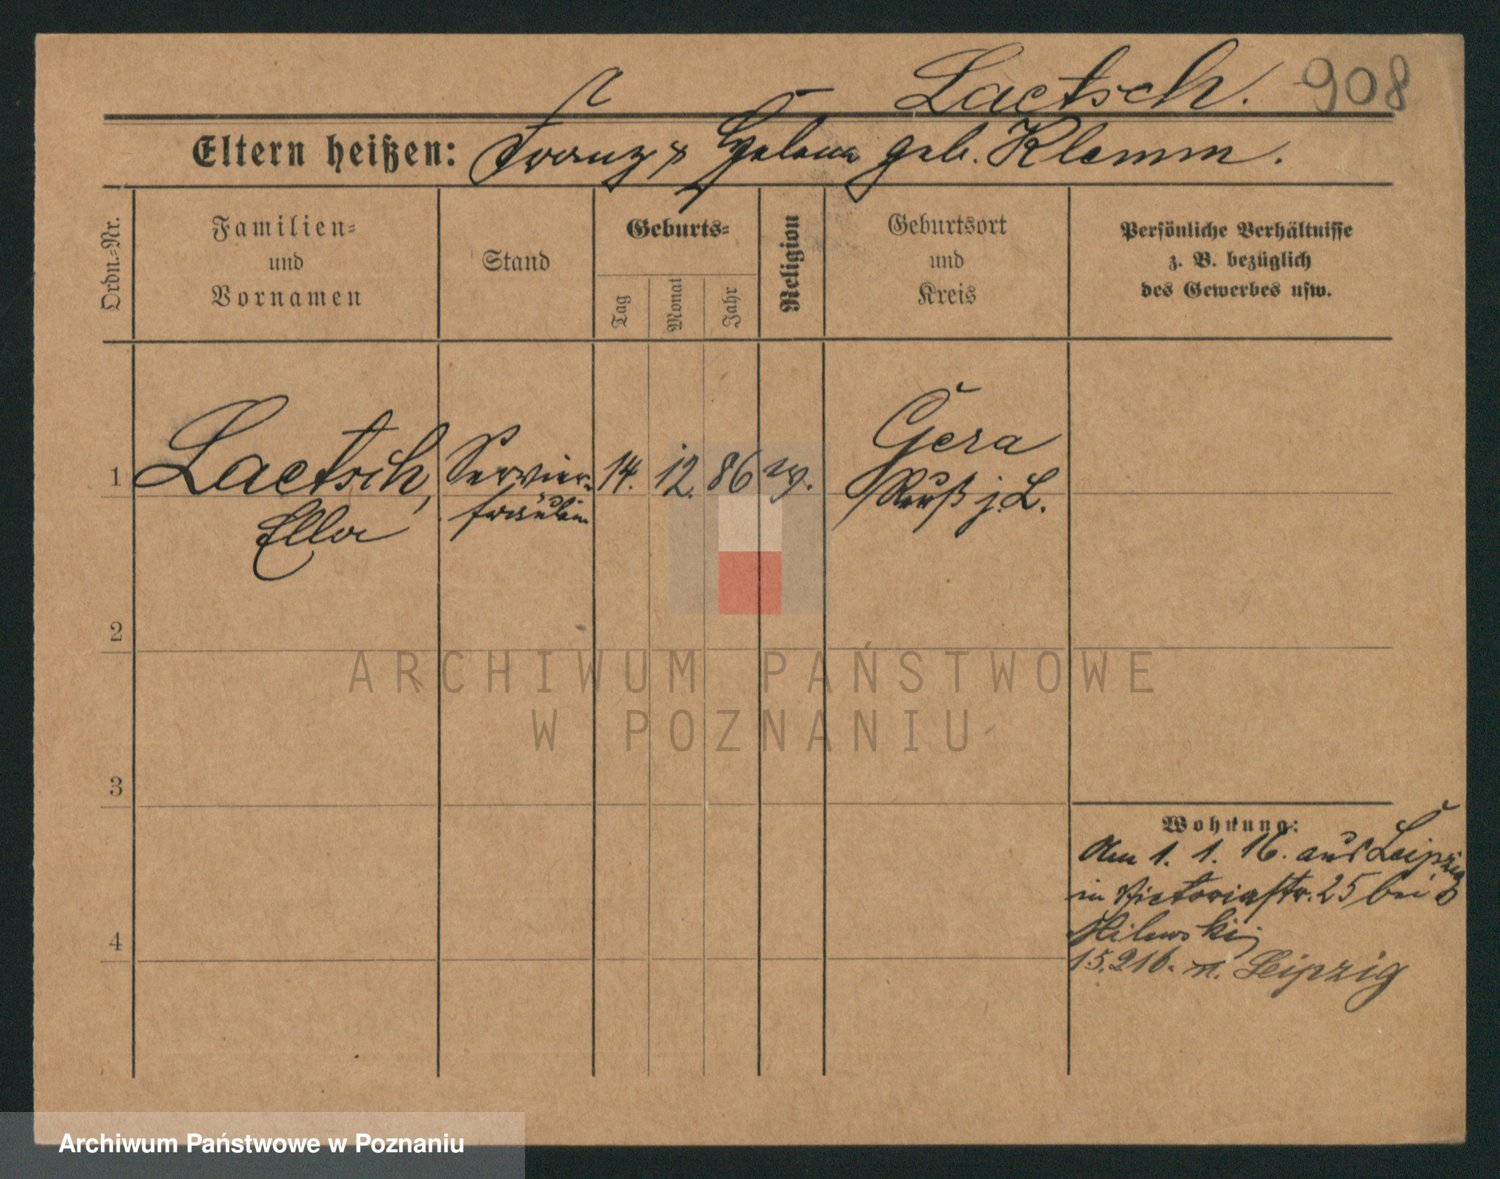 Laetsch. 908
Eltern heißen: Franz & Helene geb. Klemm.
Ordn.-Nr.
Familien=
und
Vornamen
Stand
Geburts=
Tag
Monat
Jahr
Religion
Geburtsort
und
Kreis
Persönliche Verhältnisse
z. B. bezüglich
des Gewerbes usw.
1 Laetsch, Servier= 14. 12. 86 ev. Gera
Ella fräulein Reuß j. L.
2
3
4
Wohnung:
Am 1. 1. 16. aus Leipzig
in Victoriastr. 25 bei
Milewski
15.2 16. n. Leipzig
ARCHIWUM PAŃSTWOWE
W POZNANIU
Archiwum Państwowe w Poznaniu